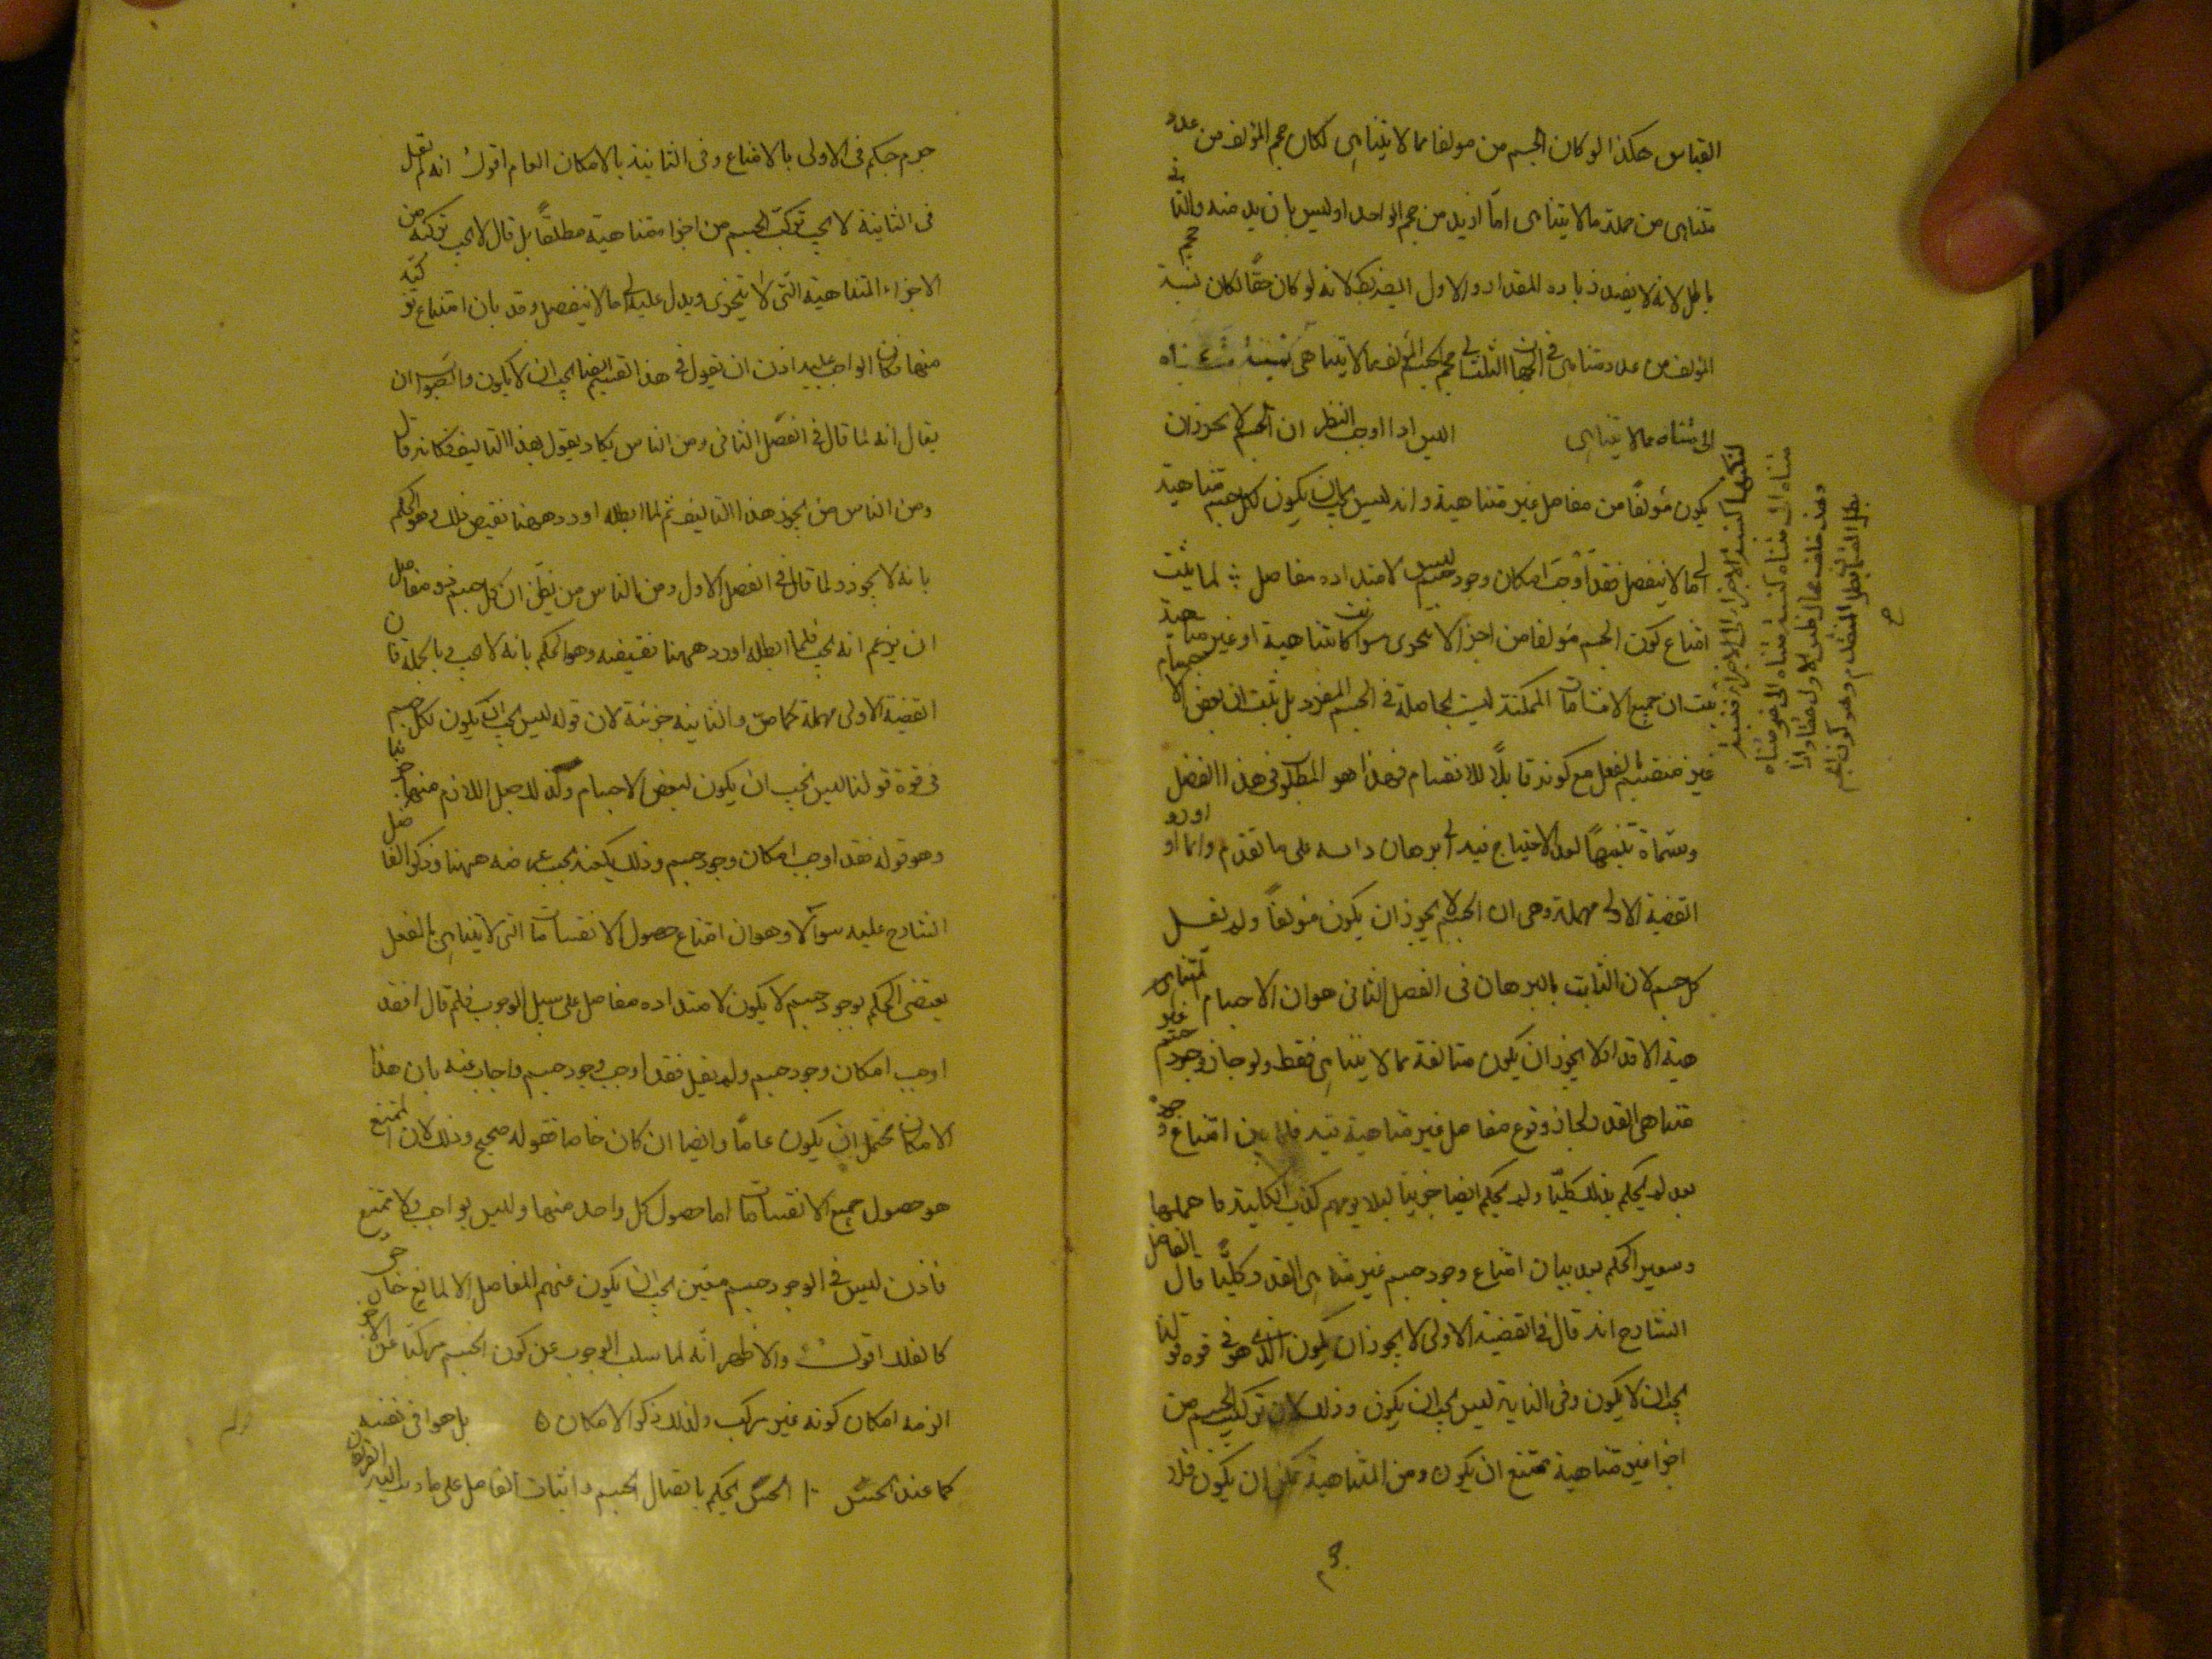 القياس هكذا لو كان الجسم من مولفا مما لا يتناهى لكان حجم المؤلف من عدد
متناهى من جملة ما لا يتناهى اما ازيد من حجم الواحد او ليس بازيد منه والثانى
باطل لانه لا يفيد زياده المقدار والاول ايضا لانه لو كان حقا لكان نسبة حجم
المؤلف من عدد متناهى فى الجهات الثلث الى حجم الجسم المؤلف مما لا يتناهى
الى متناه مما لا يتناهى اليس اذا اوجب النظر ان الجسم لا يجوز ان
يكون مؤلفا من مفاصل غير متناهية وانه ليس يجب ان يكون لكل جسم متناهية
الى ما لا ينفصل فقد اوجب امكان وجود جسم ليس لامتداده مفاصل لما يثبت
امتناع كون الجسم مؤلفا من اجزا لا يتجزى سوا كانت متناهية او غير متناهية
ثبت ان جميع الانقسامات الممكنة ليست بحاصلة فى الجسم المفرد بل ثبت ان بعض الاجسام
غير منقسم بالفعل مع كونه قابلا للانقسام فهذا هو المطلوب فى هذا الفصل
وسماه تنبيها لعدم الاحتياج فيه الى برهان على ما تقدم وانما اورد
القضية الاولى مهملة وهى ان الجسم لا يجوز ان يكون مؤلفا ولم يقل
كل جسم لان الثابت بالبرهان فى الفصل الثانى هو ان الاجسام المتناهى
هية الاقدار لا يجوز ان يكون متالفة مما لا يتناهى فقط ولو جاز وجود جسم غير
متناهى القدر لجاز وقوع مفاصل غير متناهية فيه فلما يبن امتناع وجوده
بعد لم يحكم بذلك كليا ولم يحكم ايضا جزئيا ليلا يوهم كذب الكلية فاهملها
وسيصير الحكم بعد بيان امتناع وجود جسم غير متناهى القدر كليا قال الفاضل
الشارح انه قال فى القضية الاولى لا يجوز ان يكون الذى هو فى قوة قولنا
يجب ان لا يكون وفى الثانية ليس يجب ان يكون وذلك لان تركيب الجسم من
اجزا غير متناهية ممتنع ان يكون ومن المتناهية يمكن ان يكون فلا
لكنها كنسبة الاجزا الى الاجزا فنسبة
متناه الى متناه كنسبة متناه الى غير متناه
وهذا خلف
جرم حكم فى الاولى بالامتناع وفى الثانية بالامكان العام اقول انه لم يقل
فى الثانية لا يجب تركب الجسم من اجزا متناهية مطلقا بل قال لا يجب تركبه من
الاجزاء المتناهية التى لا يتجزى ويدل عليه الى ما لا ينفصل وقد بان امتناع تركبه
منها فكان الواجب عليه اذن ان يقول فى هذا القسم ايضا يجب ان لا يكون والصواب ان
يقال انه لما قال فى الفصل الثانى ومن الناس يكاد يقول بهذا التاليف فكانه قال
ومن الناس من يجوز هذا التاليف ثم لما ابطله اورد ههنا نقيض ذلك وهو الحكم
بانه لا يجوز ولما قال فى الفصل الاول ومن الناس من يظن ان كل جسم ذو مفاصل
ان يزعم انه يجب فلما ابطله اورد ههنا نقيضه وهو الحكم بانه لا يجب وبالجملة فان
القضية الاولى مهملة كما مر والثانية جزئية لان قوله ليس يجب ان يكون لكل جسم
فى قوة قولنا ليس يجب ان يكون لبعض الاجسام ولذلك جعل اللازم منها جزئيا
وهو قوله فقد اوجب امكان وجود جسم وذلك يكفيه بحسب غرضه ههنا وذكر الفاضل
الشارح عليه سوآلا وهو ان امتناع حصول الانقسامات التى لا يتناهى بالفعل
يقتضى الحكم بوجود جسم لا يكون لامتداده مفاصل على سبيل الوجوب فلم قال فقد
اوجب امكان وجود جسم ولم يقل فقد اوجب وجود جسم واجاب عنه بان هذا
الامكان يحتمل ان يكون عاما وايضا ان كان خاصا فقوله صحيح وذلك لان الممتنع
هو حصول جميع الانقسامات اما حصول كل واحد منها وليس بواجب ولا ممتنع
فاذن ليس فى الوجود جسم معين يجب ان يكون عديم المفاصل الا لمانع خارجى
كالفلك اقول والاظهر انه لما سلب الوجوب عن كون الجسم مركبا من الاجزا
الزمه امكان كونه غير مركب ولذلك ذكر الامكان ه بل هو فى نفسه
كما عند الحس الحس يحكم باتصال الجسم واثبات الفاصل على ما ذهب اليه